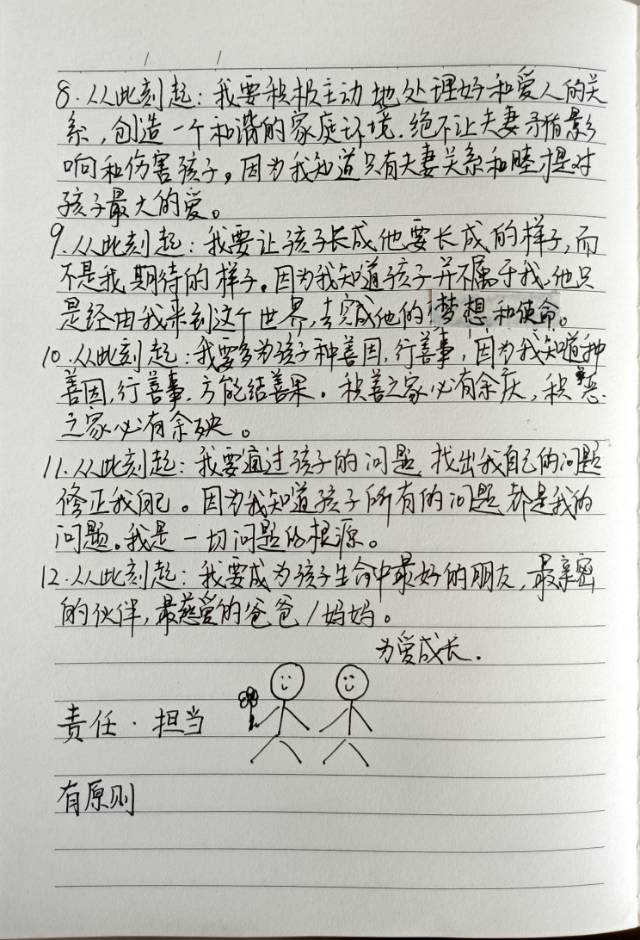 8.从此刻起:我要积极主动地处理好和爱人的关
系,创造一个和谐的家庭环境.绝不让夫妻矛盾影
响和伤害孩子。因为我知道只有夫妻关系和睦才是对
孩子最大的爱。
9.从此刻起:我要让孩子长成他要长成的样子,而
不是我期待的样子。因为我知道孩子并不属于我,他只
是经由我来到这个世界,去完成他的梦想和使命。
10.从此刻起:我要多为孩子种善因,行善事,因为我知道种
善因,行善事.方能结善果。积善之家必有余庆,积恶
之家必有余殃。
11.从此刻起:我要通过孩子的问题找出我自己的问题
修正我自己。因为我知道孩子所有的问题都是我的
问题。我是一切问题的根源。
12.从此刻起:我要成为孩子生命中最好的朋友,最亲密
的伙伴,最慈爱的爸爸/妈妈。
为爱成长.
责任·担当
有原则